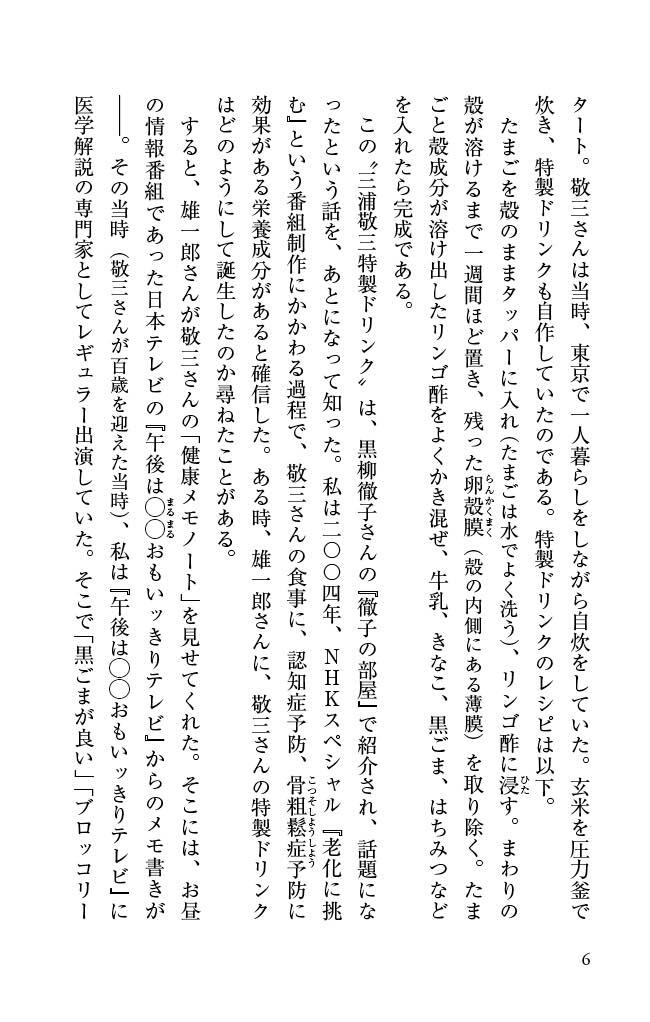 タート。敬三さんは当時、東京で一人暮らしをしながら自炊をしていた。玄米を圧力釜で
炊き、特製ドリンクも自作していたのである。特製ドリンクのレシピは以下。
たまごを殻のままタッパーに入れ（たまごは水でよく洗う）、リンゴ酢に浸す。まわりの
ひた
殻が溶けるまで一週間ほど置き、残った卵殻膜（殻の内側にある薄膜）を取り除く。たま
らんかくまく
ごと殻成分が溶け出したリンゴ酢をよくかき混ぜ、牛乳、きなこ、黒ごま、はちみつなど
を入れたら完成である。
この〝三浦敬三特製ドリンク〟は、黒柳徹子さんの『徹子の部屋』で紹介され、話題にな
ったという話を、あとになって知った。私は二〇〇四年、ＮＨＫスペシャル『老化に挑
む』という番組制作にかかわる過程で、敬三さんの食事に、認知症予防、骨粗鬆症予防に
こつそしょうしょう
効果がある栄養成分があると確信した。ある時、雄一郎さんに、敬三さんの特製ドリンク
はどのようにして誕生したのか尋ねたことがある。
すると、雄一郎さんが敬三さんの「健康メモノート」を見せてくれた。そこには、お昼
の情報番組であった日本テレビの『午後は◯◯おもいッきりテレビ』からのメモ書きが
まるまる
――。その当時（敬三さんが百歳を迎えた当時）、私は『午後は◯◯おもいッきりテレビ』に
医学解説の専門家としてレギュラー出演していた。そこで「黒ごまが良い」「ブロッコリー
6